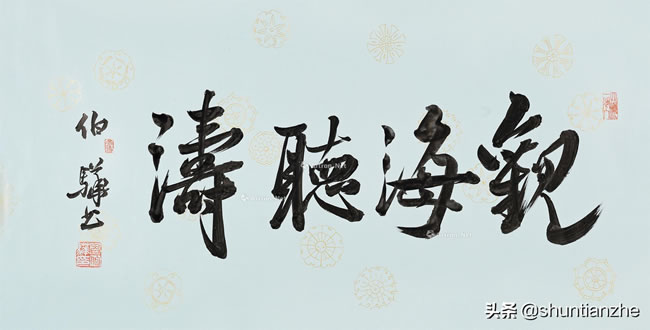 觀海聽濤
伯驊书
头条 @shuntianzhe